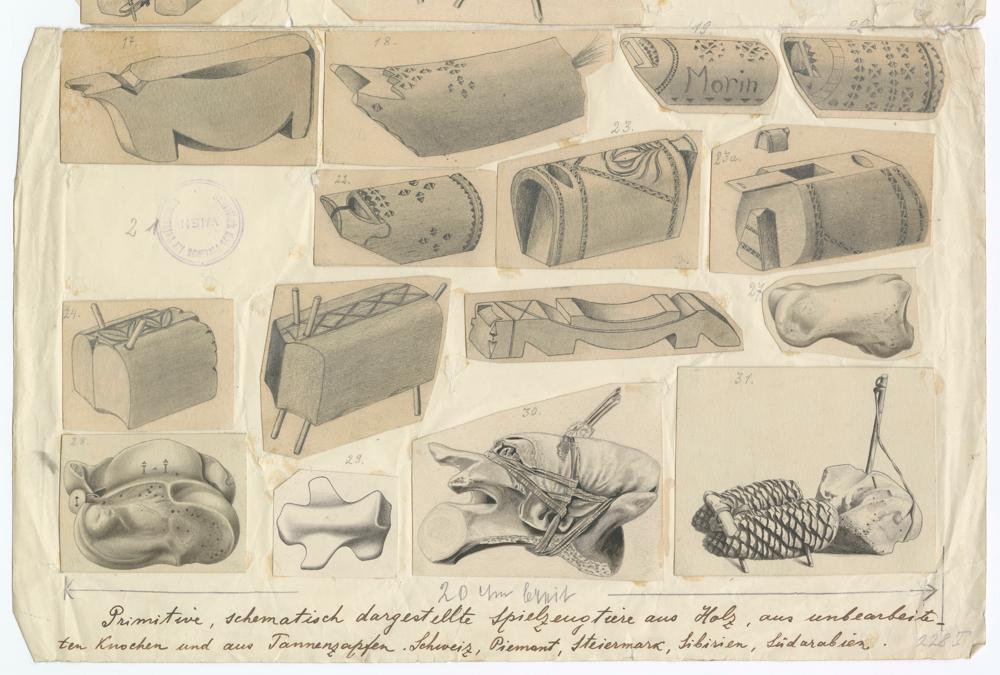 17.
18.
19.
Morin
22.
23.
23a.
21
24.
27.
28.
29.
30.
31.
20 cm breit
Primitive, schematisch dargestellte Spielzeugtiere aus Holz, aus unbearbeite-
ten Knochen und aus Tannenzapfen. Schweiz, Piemont, Steiermark, Sibirien, Südarabien.
228 I